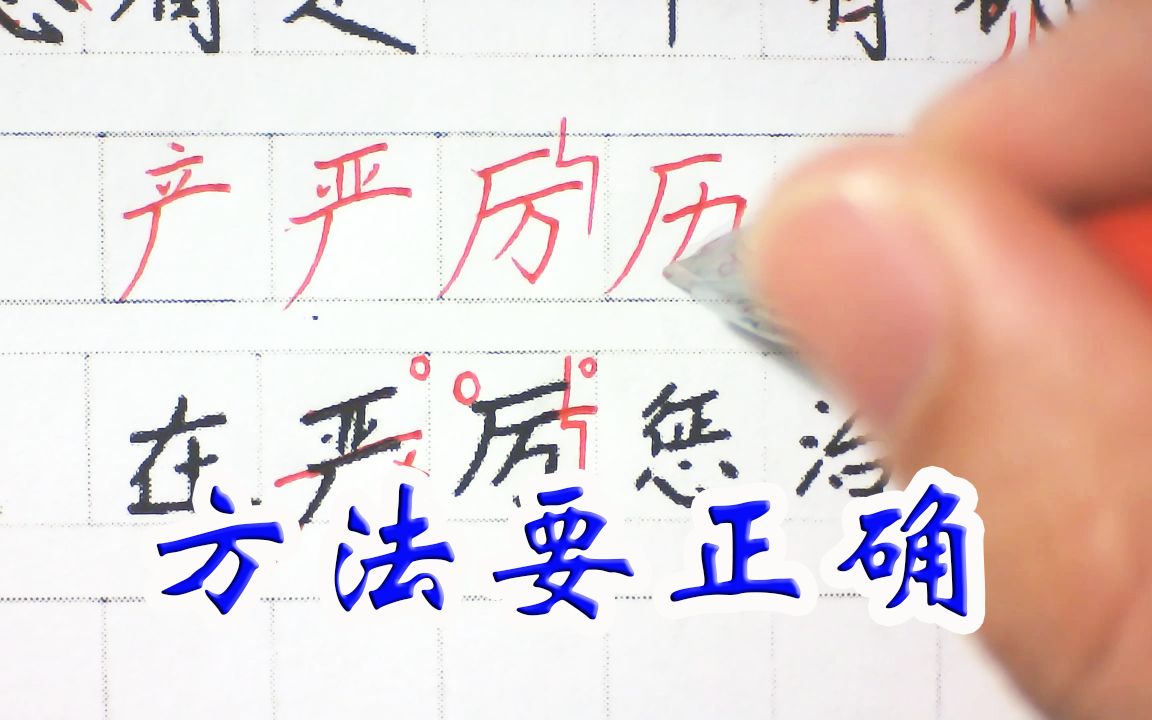 产严厉历
在严厉惩治
方法要正确